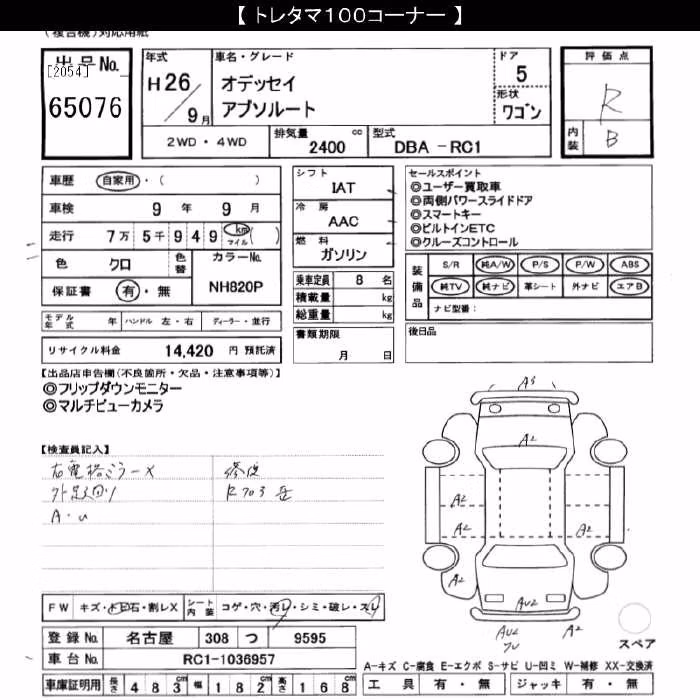 【 トレタマ１００コーナー 】
(複合機)対応用紙
出品No.
[2054]
65076
年式
H 26 / 9 月
車名・グレード
オデッセイ
アブソルート
ドア
5
形状
ワゴン
2WD・4WD
排気量
2400 cc
型式
DBA -RC1
評価点
R
内装
B
車歴 自家用・( )
車検 9 年 9 月
走行 7万 5千 9 4 9 km マイル ( )
色 クロ 色替 カラーNo. NH820P
保証書 有・無
モデル年式 年 ハンドル 左・右 ディーラー・並行
リサイクル料金 14,420 円 預託済
シフト
IAT
冷房
AAC
燃料
ガソリン
乗車定員 8 名
積載量 kg
総重量 kg
書類期限
月 日
セールスポイント
◎ユーザー買取車
◎両側パワースライドドア
◎スマートキー
◎ビルトインETC
◎クルーズコントロール
装備品
S/R 純A/W P/S P/W ABS
純TV 純ナビ 革シート 外ナビ エアB
ナビ型番:
後日品
【出品店申告欄(不良箇所・欠品・注意事項等)】
◎フリップダウンモニター
◎マルチビューカメラ
【検査員記入】
右電格ミラーX
A・u
修復
A3
A2
A2
A2
A2
A2
A2
AU2
AU2
A2
AU2
FW キズ・トビ石・割レX シート内装 コゲ・穴・汚レ・シミ・破レ・スレ
登録No. 名古屋 308 つ 9595
車台No. RC1-1036957
車庫証明用 長さ 4 8 3cm 幅 1 8 2cm 高さ 1 6 8cm
スペア
A-キズ C-腐食 E-エクボ S-サビ U-凹ミ W-補修 XX-交換済
工具 有・無 ジャッキ 有・無